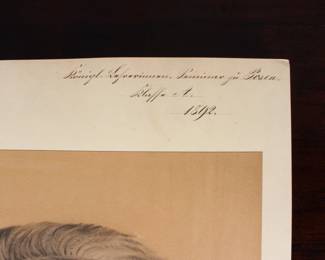 Königl. Lehrerinnen-Seminar zu Posen.
Klasse A.
1892.